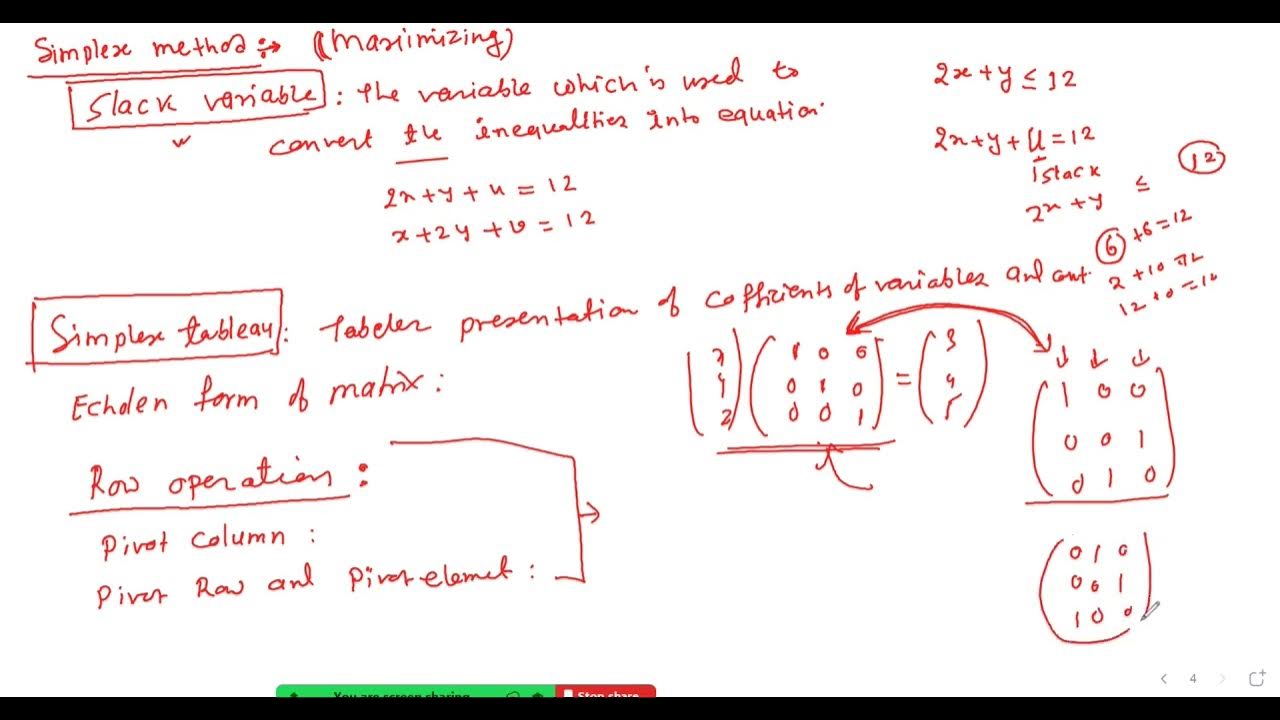 Simplex method :→ (Maximizing)
Slack variable : The variable which is used to
convert the inequalities into equation.
2x+y+u=12
x+2y+v=12
2x+y≤12
2x+y+u=12
↑slack
2x+y ≤ 12
6+6=12
2+10=12
12+0=12
Simplex tableau : Tabeler presentation of cofficients of variables and cont.
Echolen form of matrix :
x 1 0 0 = 3
y 0 1 0 4
z 0 0 1 5
1 0 0
0 0 1
0 1 0
Row operation :
Pivot Column :
Pivot Row and Pivot elemet :
0 1 0
0 0 1
1 0 0
4
You are screen sharing
Stop share